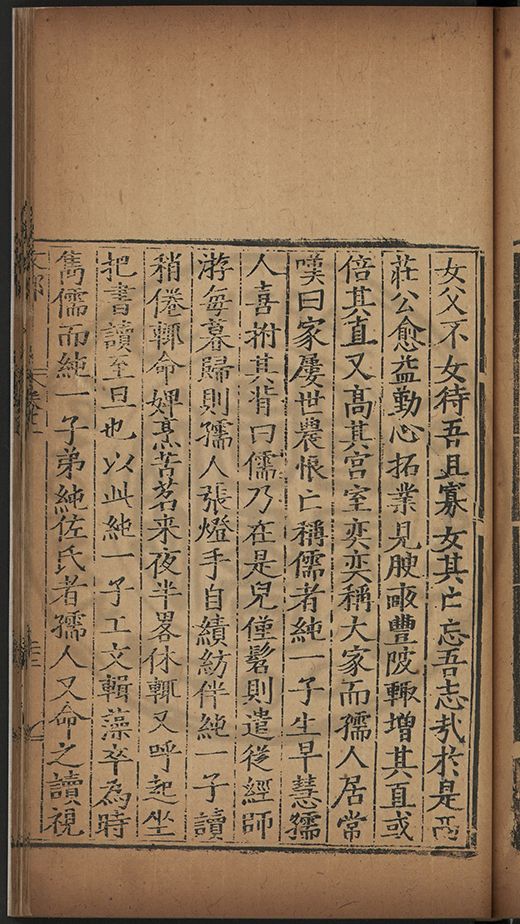 女父不女待吾且寡女其亡忘吾志㦲於是西
莊公愈益勤心拓業見腴畝豐陂輙増其直或
倍其直又高其宮室奕奕稱大家而孺人居常
嘆曰家屢世農悵亡稱儒者純一子生早慧孺
人喜拊其背曰儒乃在是兒僅髫則遣從經師
游每暮歸則孺人張燈手自績紡伴純一子讀
稍倦輙命婢烹苦茗来夜半畧休輙又呼起坐
把書讀至旦也以此純一子工文輯藻卒為時
雋儒而純一子弟純佐氏者孺人又命之讀視